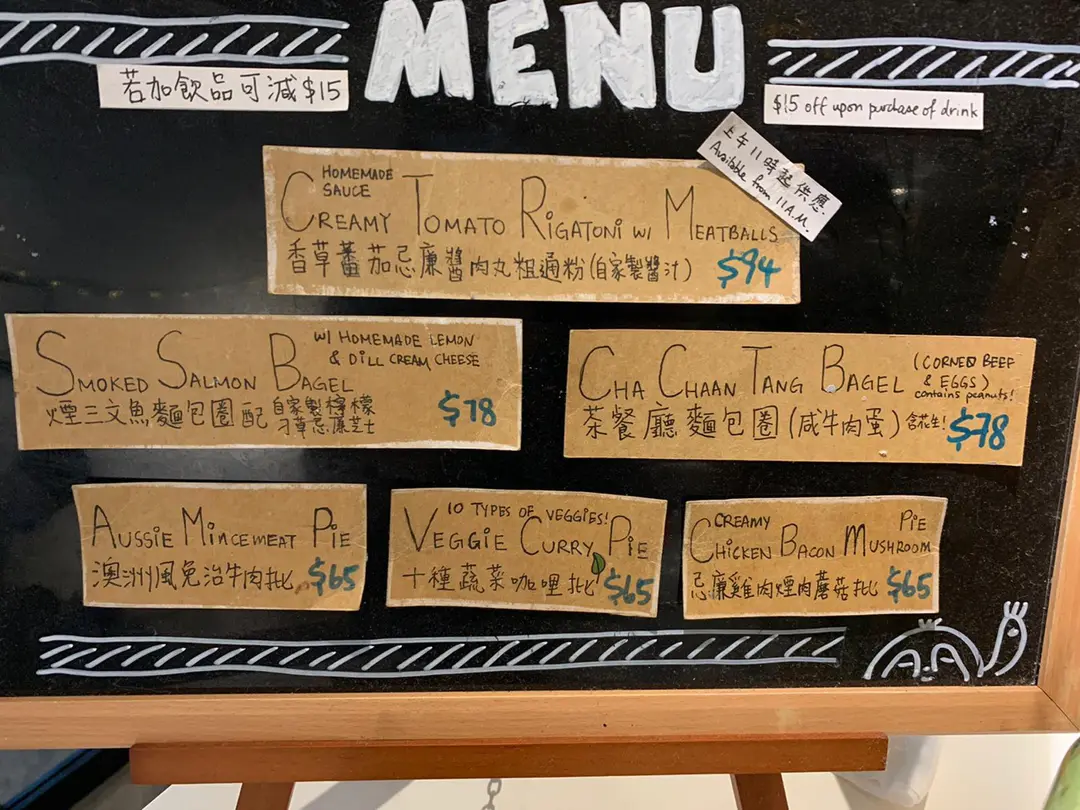 MENU
若加飲品可減$15
$15 off upon purchase of drink
上午11時起供應
Available from 11A.M.
HOMEMADE
SAUCE
CREAMY TOMATO RIGATONI W/ MEATBALLS
香草蕃茄忌廉醬肉丸粗通粉(自家製醬汁) $94
W/ HOMEMADE LEMON
& DILL CREAM CHEESE
SMOKED SALMON BAGEL
煙三文魚麵包圈配 自家製檸檬
刁草忌廉芝士
$78
CHA CHAAN TANG BAGEL (CORNED BEEF
& EGGS)
contains peanuts!
茶餐廳麵包圈(咸牛肉蛋)含花生! $78
AUSSIE MINCEMEAT PIE
澳洲風免治牛肉批 $65
10 TYPES OF VEGGIES!
VEGGIE CURRY PIE
十種蔬菜咖哩批 $65
CREAMY PIE
CHICKEN BACON MUSHROOM
忌廉雞肉煙肉蘑菇批 $65